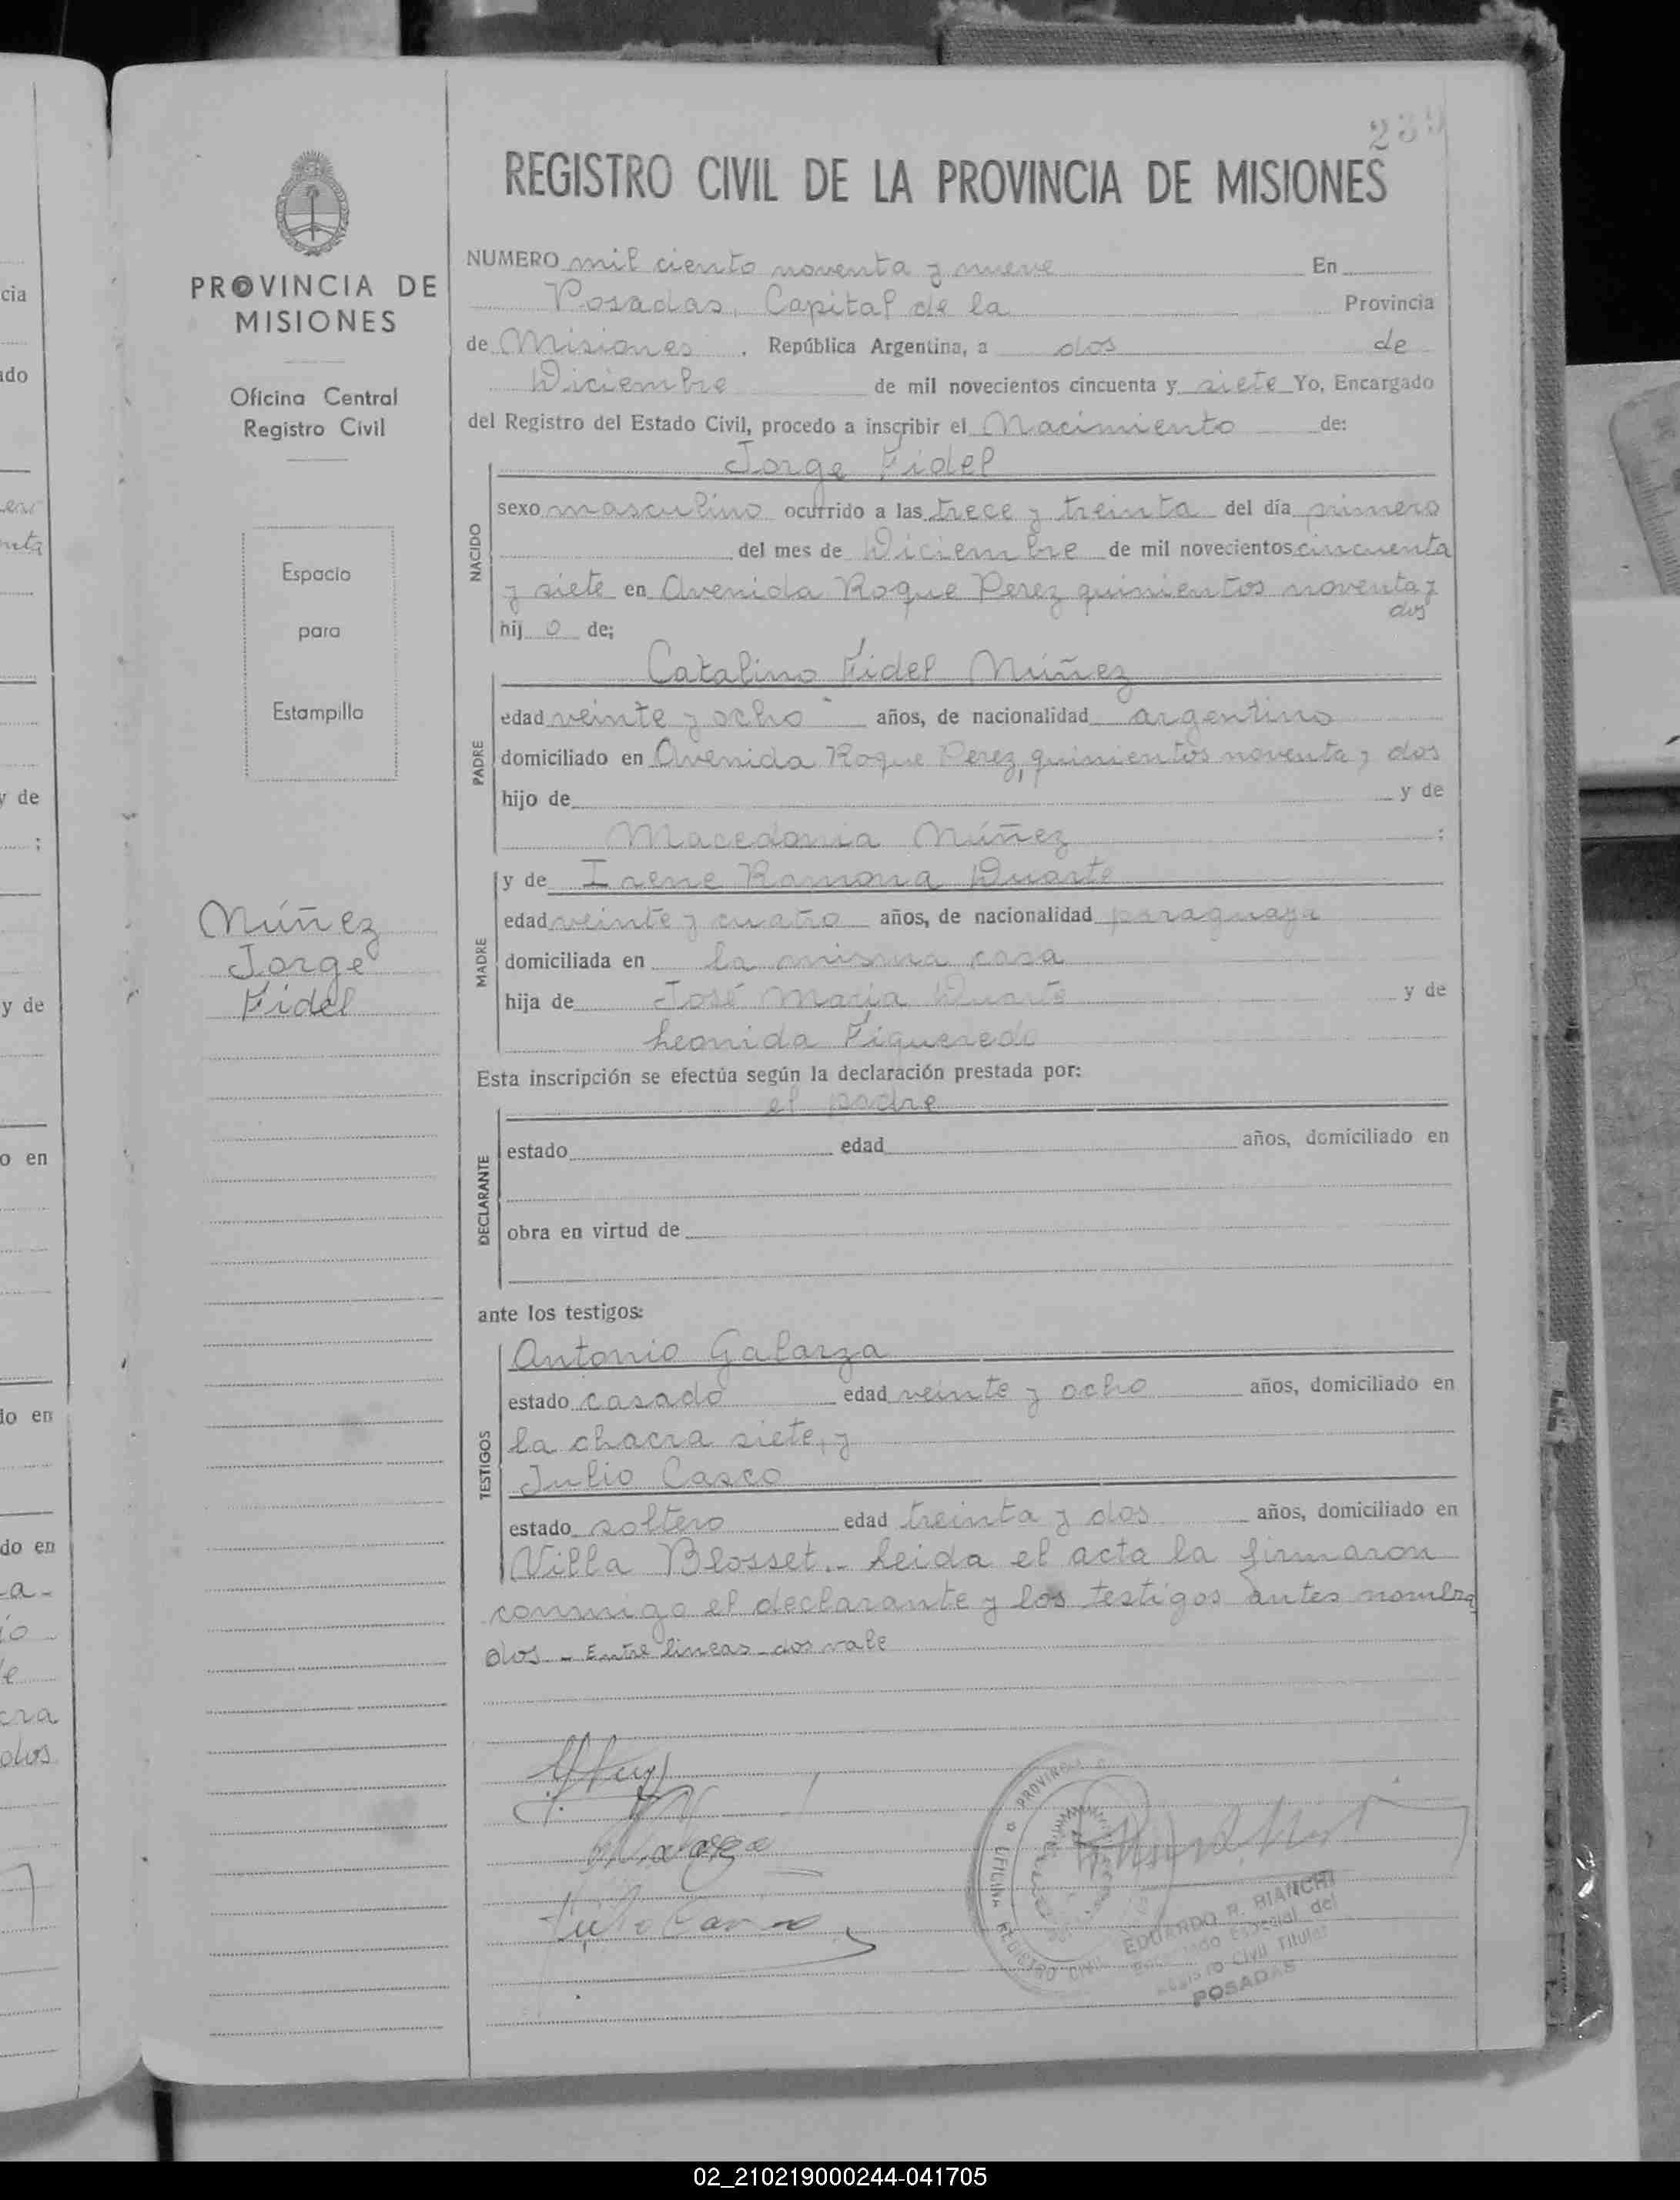 239
REGISTRO CIVIL DE LA PROVINCIA DE MISIONES
PROVINCIA DE
MISIONES
Oficina Central
Registro Civil
Espacio
para
Estampilla
Núñez
Jorge
Fidel
NUMERO mil ciento noventa y nueve En
Posadas, Capital de la Provincia
de Misiones . República Argentina, a dos de
Diciembre de mil novecientos cincuenta y siete Yo, Encargado
del Registro del Estado Civil, procedo a inscribir el Nacimiento de:
Jorge Fidel
NACIDO
sexo masculino ocurrido a las trece y treinta del día primero
del mes de Diciembre de mil novecientos cincuenta
y siete en Avenida Roque Perez quinientos noventa y
dos
hij o de;
Catalino Fidel Núñez
PADRE
edad veinte y ocho años, de nacionalidad argentino
domiciliado en Avenida Roque Perez, quinientos noventa y dos
hijo de y de
Macedonia Núñez ;
MADRE
y de Irene Ramona Duarte
edad veinte y cuatro años, de nacionalidad paraguaya
domiciliada en la misma casa
hija de José Maria Duarte y de
Leonida Figueredo
Esta inscripción se efectúa según la declaración prestada por:
el padre
DECLARANTE
estado edad años, domiciliado en
obra en virtud de
ante los testigos:
TESTIGOS
Antonio Galarza
estado casado edad veinte y ocho años, domiciliado en
la chacra siete, y
Julio Casco
estado soltero edad treinta y dos años, domiciliado en
Villa Blosset.- Leida el acta la firmaron
conmigo el declarante y los testigos antes nombra
dos - Entre lineas - dos vale
Julio Casco
PROVINCIA
OFICINA REGISTRO CIVIL
EDUARDO R. BIANCHI
Encargado Especial del
Registro Civil Titular
POSADAS
cia
ado
y de
;
y de
o en
do en
do en
a-
io
cra
dos
02_210219000244-041705